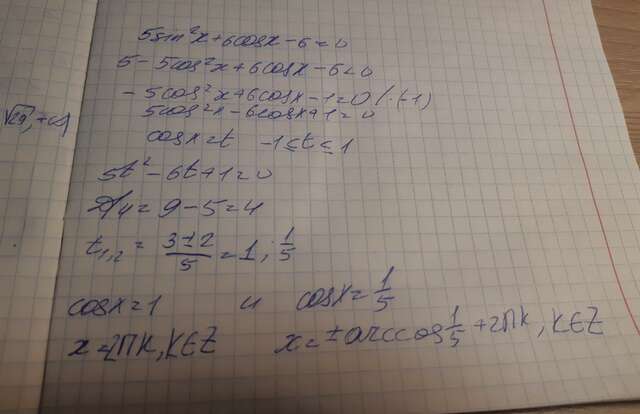 5sin²x+6cosx-6=0
5-5cos²x+6cosx-6=0
-5cos²x+6cosx-1=0 /·(-1)
5cos²x-6cosx+1=0
cosx=t -1≤t≤1
5t²-6t+1=0
D/4=9-5=4
t₁,₂ = (3±2)/5 = 1; 1/5
cosx=1 и cosx=1/5
x=2πk, k∈Z x=±arccos 1/5 +2πk, k∈Z